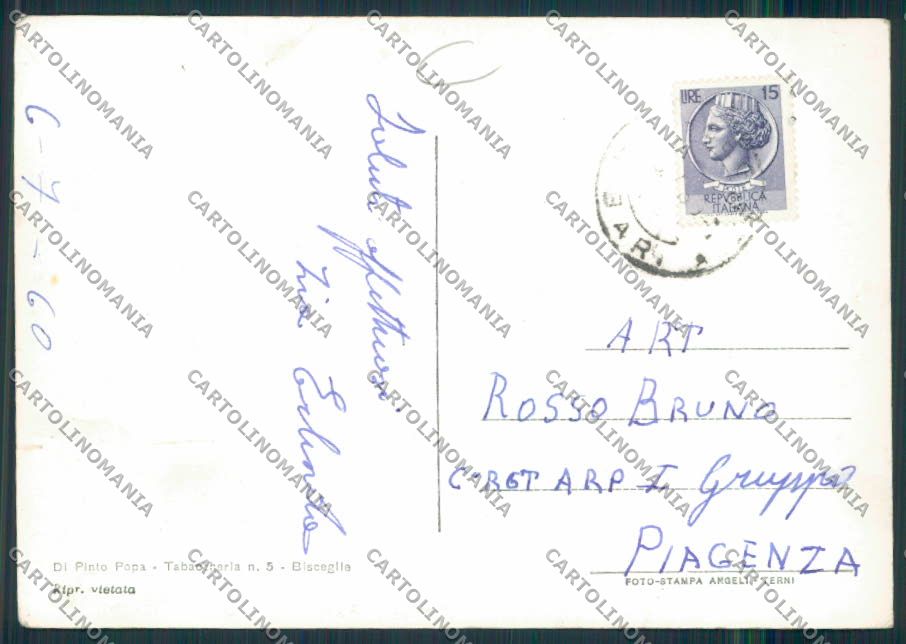 6-7-60
Saluti affettuosi
zia Erlinda
LIRE 15
POSTE
REPVBBLICA
ITALIANA
BARI
ART
ROSSO BRUNO
C° RGT ARP I Gruppo
PIAGENZA
Di Pinto Popa - Tabaccheria n. 5 - Bisceglie
Ripr. vietata
FOTO-STAMPA ANGELI - TERNI
CARTOLINOMANIA